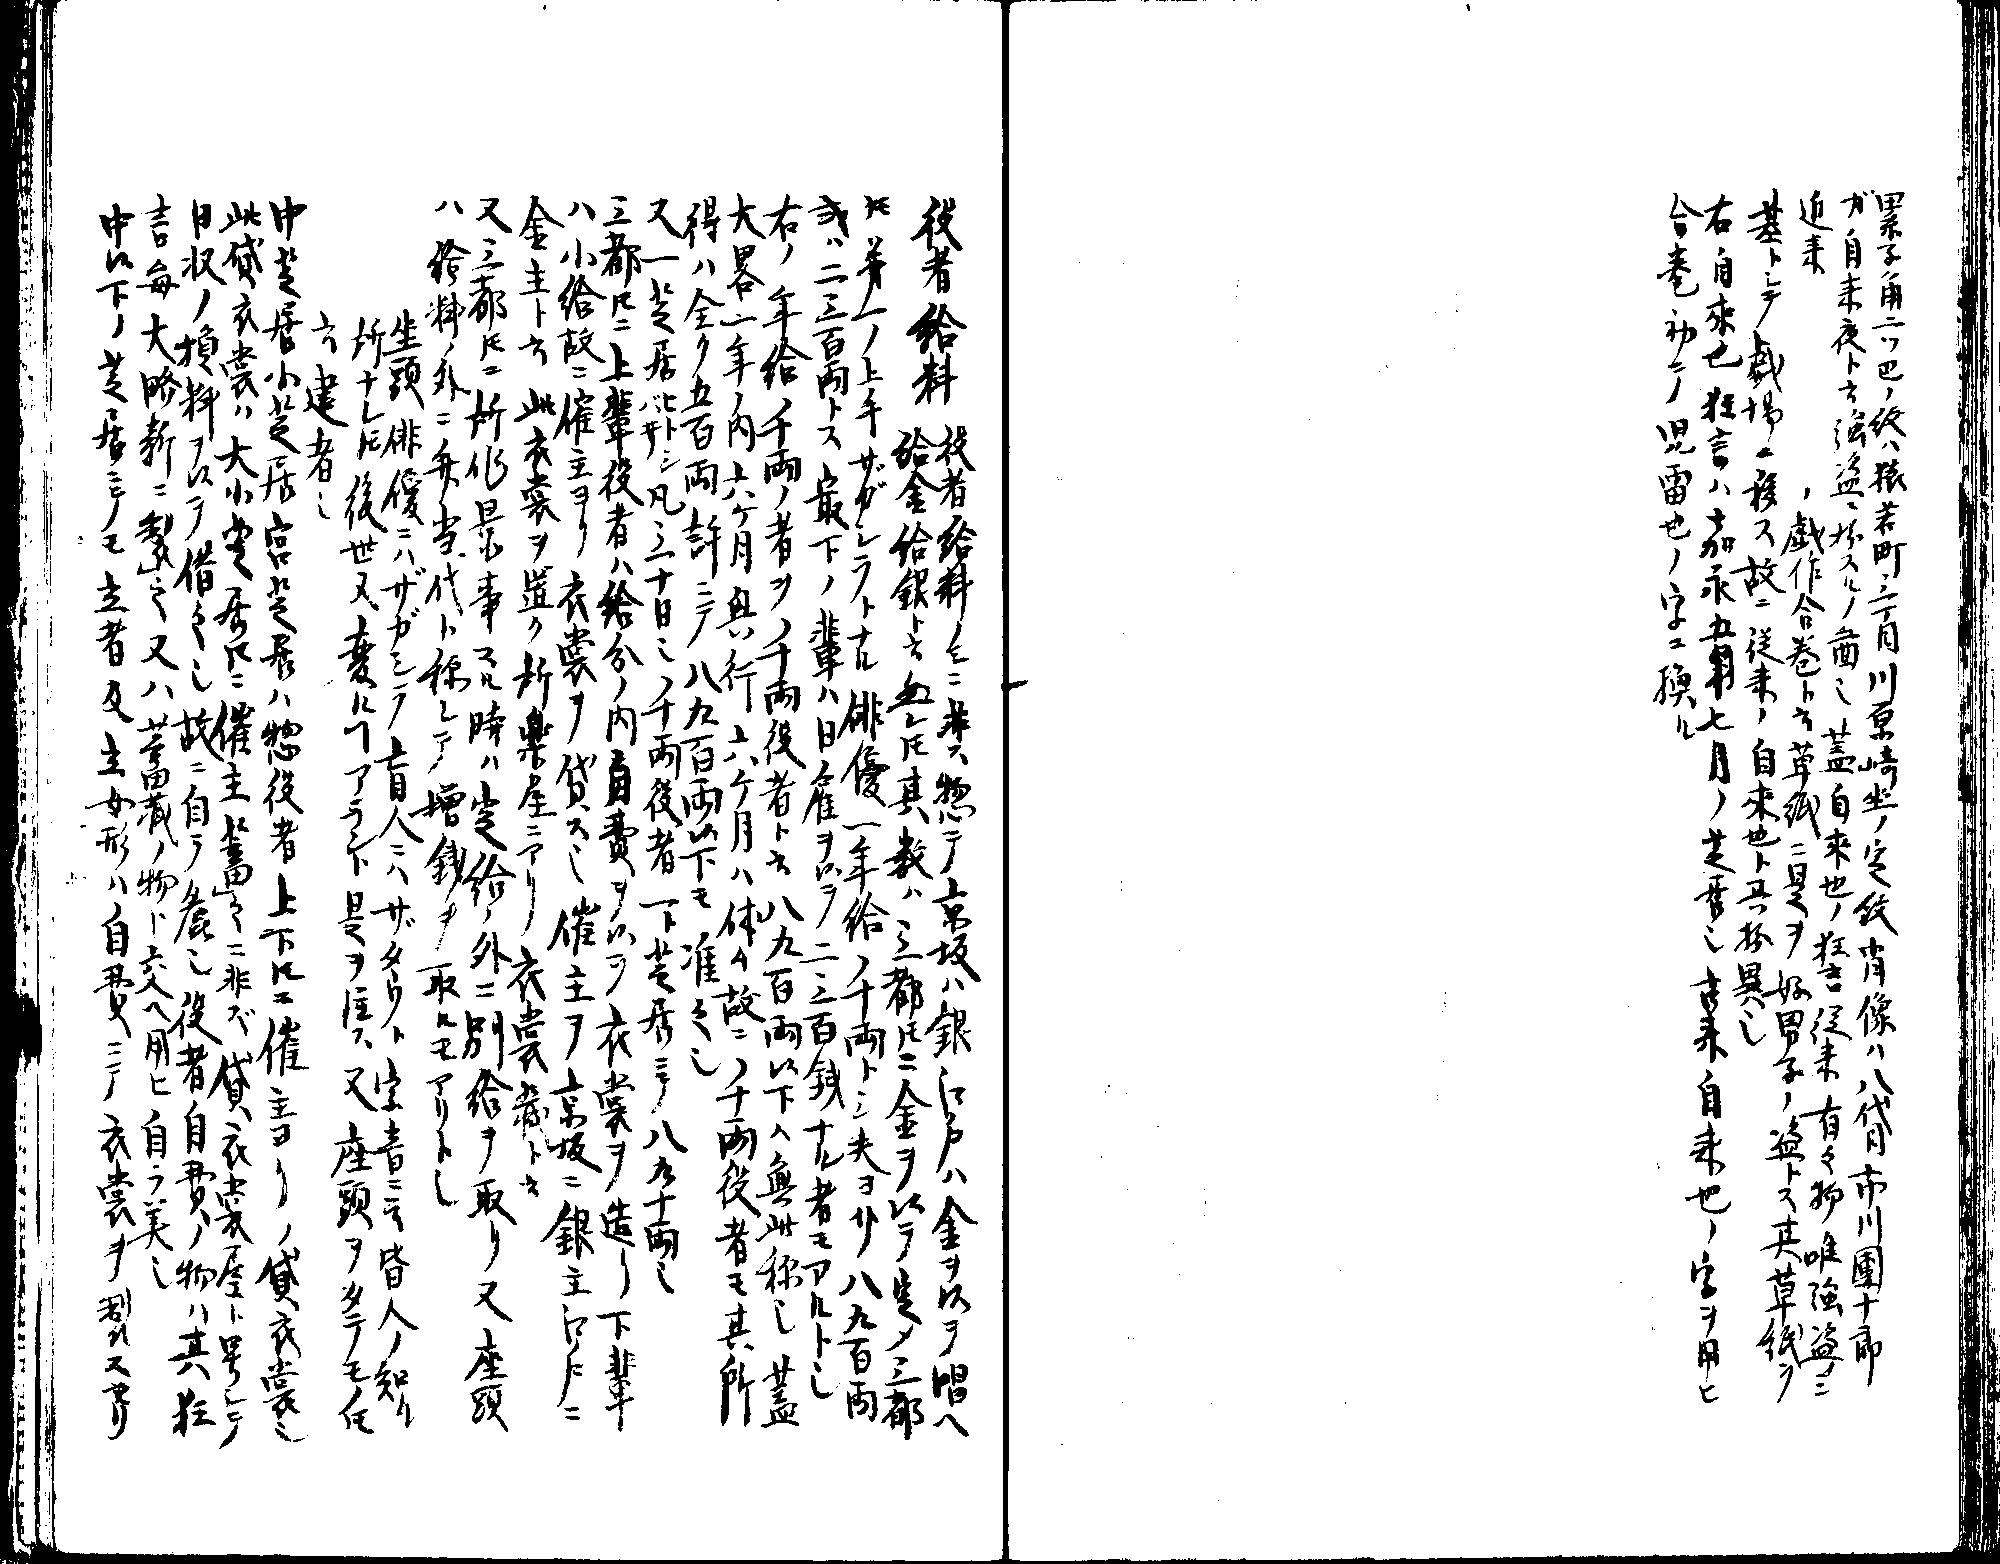 累子角一ツ巴ノ紋ハ猿若町三丁目川原崎坐ノ定紋肖像ハ八代目市川團十郎
ガ自来夜ト云強盗ニ扮スルノ画也蓋自来也ノ狂言従来有之物唯強盗ノミ
近来ノ戯作合巻ト云草紙ニ是ヲ好男子ノ盗トス其草紙ヲ
基トシテ戯場ニ移ス故ニ従来ノ自来也ト其扮異也
右自来也狂言ハ嘉永五年七月ノ芝居也古来自来也ノ字ヲ用ヒ
合巻初テ児雷也ノ字ニ換ル
役者給料 役者給料ノミニ非ス惣テ京坂ハ銀江戸ハ金ヲ以テ唱ヘ
給金給銀ト云無レ𪜈其数ハ三都𪜈ニ金ヲ以テ定メ三都
𪜈第一ノ上手ザガシラト云俳優一年給ノ千両トシ夫ヨリ八九百両
或ハ二三百両トス最下ノ輩ハ日雇ヲ以テ二三百銭ナル者モアルト也
右ノ年給ノ千両ノ者ヲノ千両役者ト云八九百両以下ハ無此称也蓋
大畧一年ノ内六ケ月興行六ケ月ハ休ム故ニノ千両役者モ其所
得ハ全ク五百両許ニテ八九百両以下モ准之也
又一芝居ヒトシバヰ凡三十日也ノ千両役者一ト芝居ニテ八九十両也
三都𪜈ニ上輩役者ハ給分ノ内自費ヲ以テ衣裳ヲ造リ下輩
ハ小給故ニ催主ヨリ衣裳ヲ貸ス也催主ヲ京坂ニ銀主江戸ニ
金主ト云此衣裳ヲ置ク所楽屋ニアリ衣裳蔵ト云
又三都𪜈ニ所作景事スル時ハ定給ノ外ニ別給ヲ取リ又座頭
ハ給料ノ外ニ弁当代ト称シテ増銭ヲ取ルモアリト也
坐頭俳優ニハザガシラ盲人ニハザタウト字音ニ云皆人ノ知ル
所ナレ𪜈後世又変ルヿアラント是ヲ註ス又座頭ヲタテモノ𪜈
云建者也
中芝居小芝居宮芝居ハ惣役者上下𪜈ニ催主ヨリノ貸衣裳也
此貸衣裳ハ大小芝居𪜈ニ催主蓄之ニ非ズ貸衣裳屋ト号シテ
日収ノ損料ヲ以テ借之也故ニ自ラ麁也役者自費ノ物ハ其狂
言毎大略新ニ製之又ハ蓄蔵ノ物ト交ヘ用ヒ自ラ美也
中以下ノ芝居ニテモ立者及立女形ハ自費ニテ衣裳ヲ製スアリ